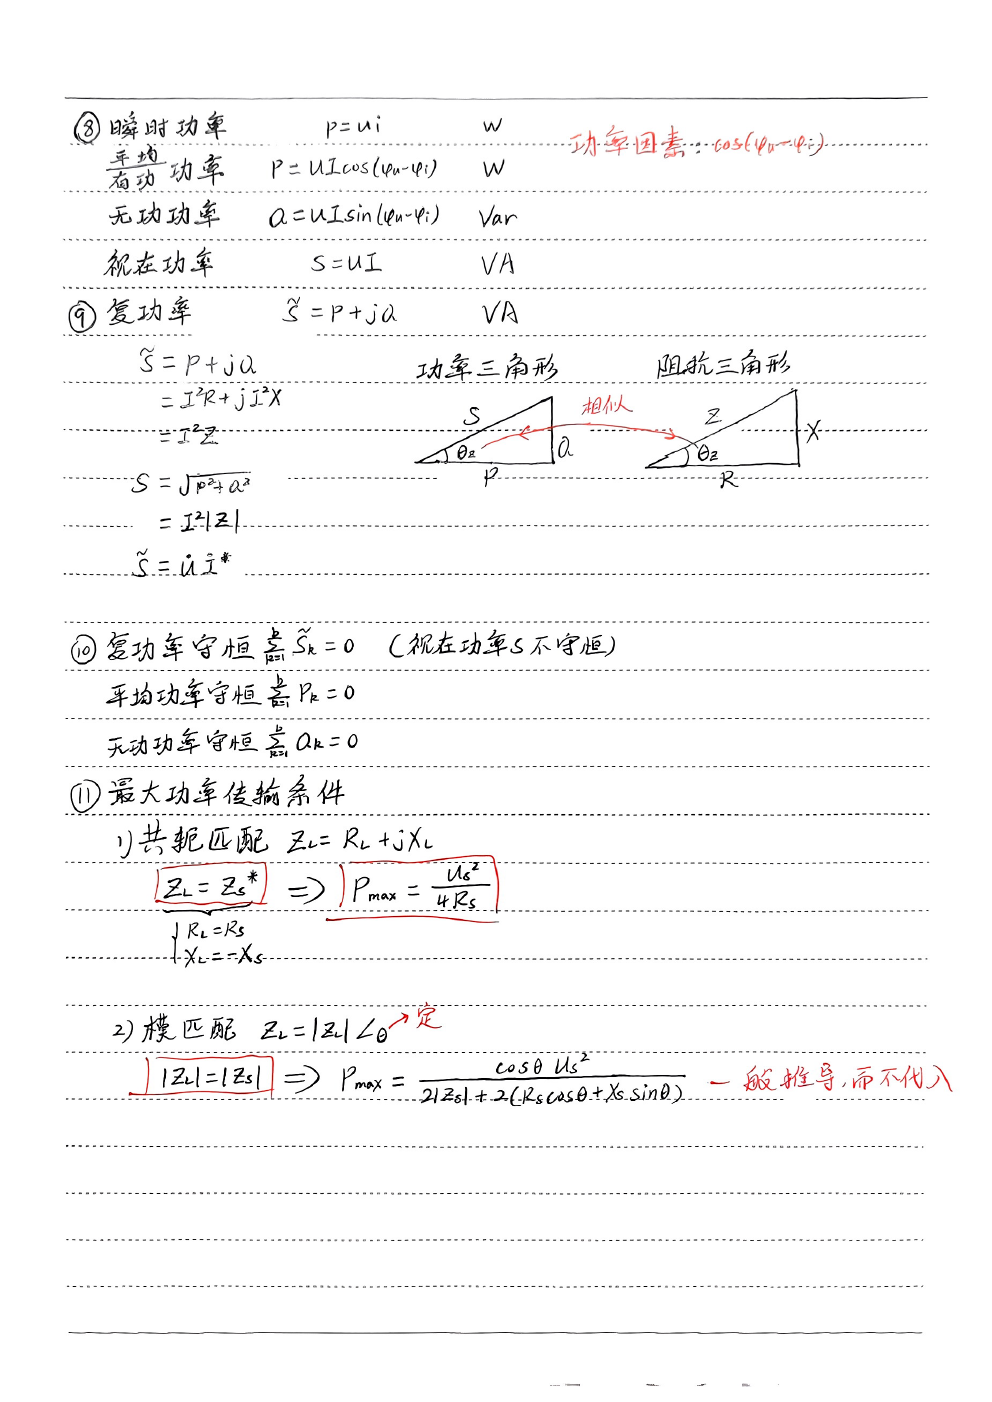 ⑧ 瞬时功率 p=ui W
功率因素：cos(φu-φi)
平均/有功 功率 P=UIcos(φu-φi) W
无功功率 Q=UIsin(φu-φi) Var
视在功率 S=UI VA
⑨ 复功率 S̃=P+jQ VA
S̃=P+jQ 功率三角形 阻抗三角形
=I²R+jI²X 相似
=I²Z S θz P Q Z θz R X
S=√(P²+Q²)
=I²|Z|
S̃=U̇İ*
⑩ 复功率守恒 ∑(k=1→b) S̃k=0 (视在功率S不守恒)
平均功率守恒 ∑(k=1→b) Pk=0
无功功率守恒 ∑(k=1→b) Qk=0
⑪ 最大功率传输条件
1) 共轭匹配 ZL=RL+jXL
ZL=Zs* ⇒ Pmax=Us²/4Rs
{RL=Rs
XL=-Xs
2) 模匹配 ZL=|ZL|∠θ →定
|ZL|=|Zs| ⇒ Pmax=cosθ Us²/(2|Zs|+2(Rscosθ+Xssinθ)) 一般推导,而不代入